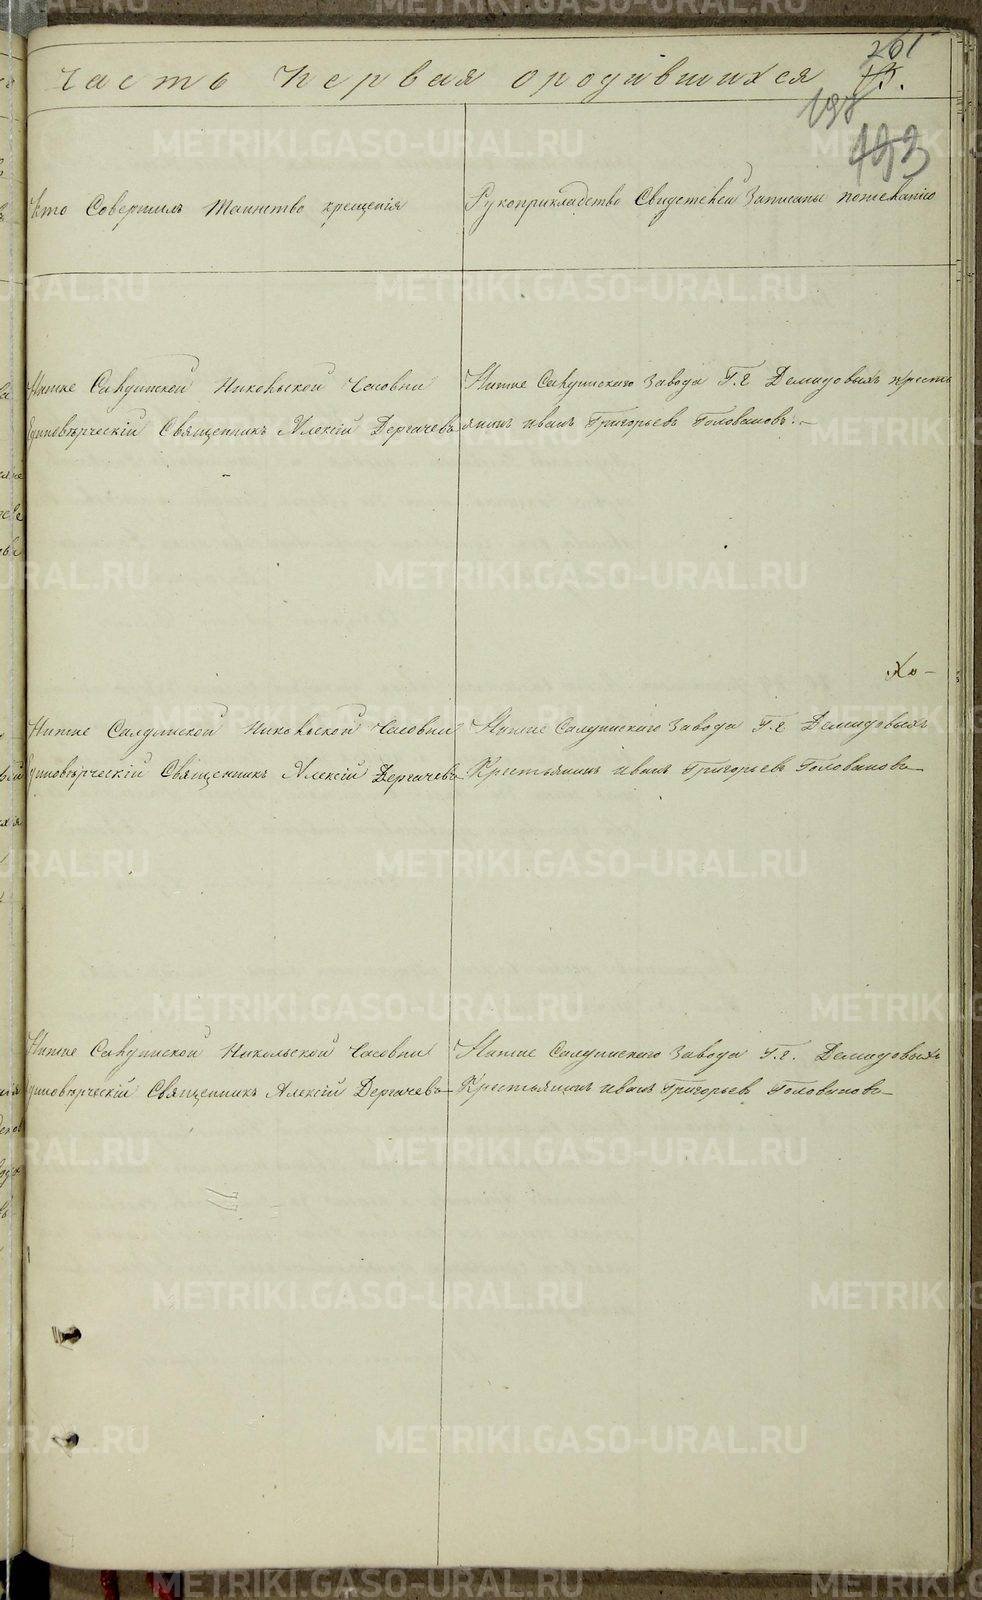 261
Часть Первая ородившихся 13.
198
193
Кто Совершилъ Таинство крещенія
Рукоприкладство Свидетелей Записаны пожеланію
Нижне Салдинской Никольской Часовни
Единоверческій Священникъ Алексій Дергачевъ
Нижне Салдинскаго Завода Г.г Демидовыхъ кресть
янинъ иванъ Григорьевъ Головановъ.-
Хо-
Нижне Салдинской Никольской Часовни
Единоверческій Священникъ Алексій Дергачевъ
Нижне Салдинскаго Завода Г.г Демидовыхъ
Крестьянинъ иванъ Григорьевъ Головановъ
Нижне Салдинской Никольской Часовни
Единоверческій Священникъ Алексій Дергачевъ
Нижне Салдинскаго Завода Г.г. Демидовыхъ
Крестьянинъ иванъ Григорьевъ Головановъ
METRIKI.GASO-URAL.RU